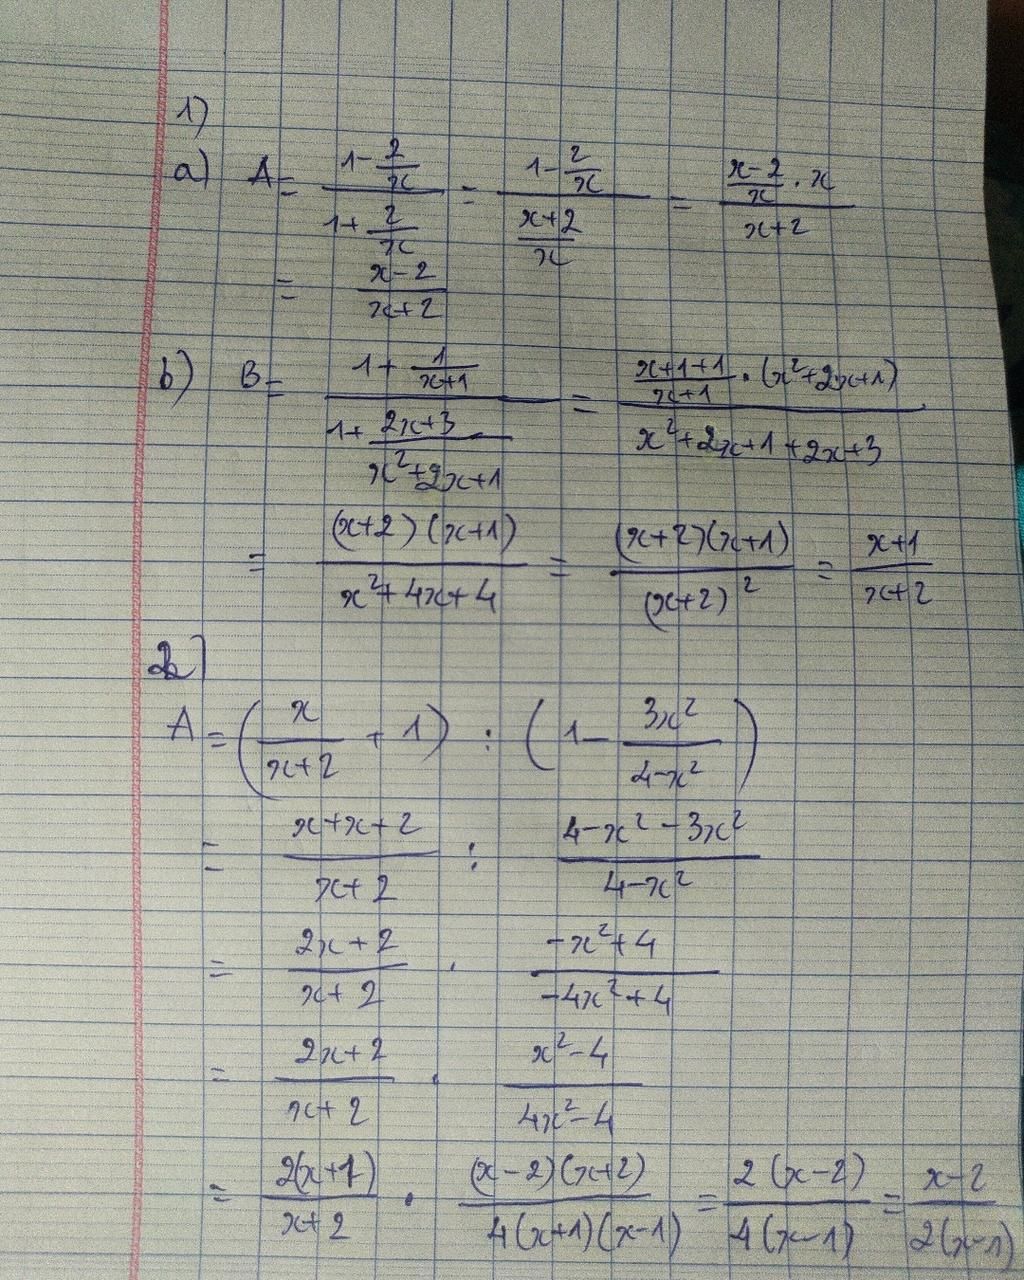 1)
a) A = (1 - 2/x)/(1 + 2/x) = (1 - 2/x)/((x+2)/x) = ((x-2)/x . x)/(x+2)
= (x-2)/(x+2)
b) B = (1 + 1/(x+1))/(1 + (2x+3)/(x²+2x+1)) = ((x+1+1)/(x+1) . (x²+2x+1))/(x²+2x+1+2x+3)
= ((x+2)(x+1))/(x²+4x+4) = ((x+2)(x+1))/(x+2)² = (x+1)/(x+2)
2)
A = (x/(x+2) + 1) : (1 - 3x²/(4-x²))
= (x+x+2)/(x+2) : (4-x²-3x²)/(4-x²)
= (2x+2)/(x+2) . (-x²+4)/(-4x²+4)
= (2x+2)/(x+2) . (x²-4)/(4x²-4)
= 2(x+1)/(x+2) . (x-2)(x+2)/(4(x+1)(x-1)) = 2(x-2)/(4(x-1)) = (x-2)/(2(x-1))